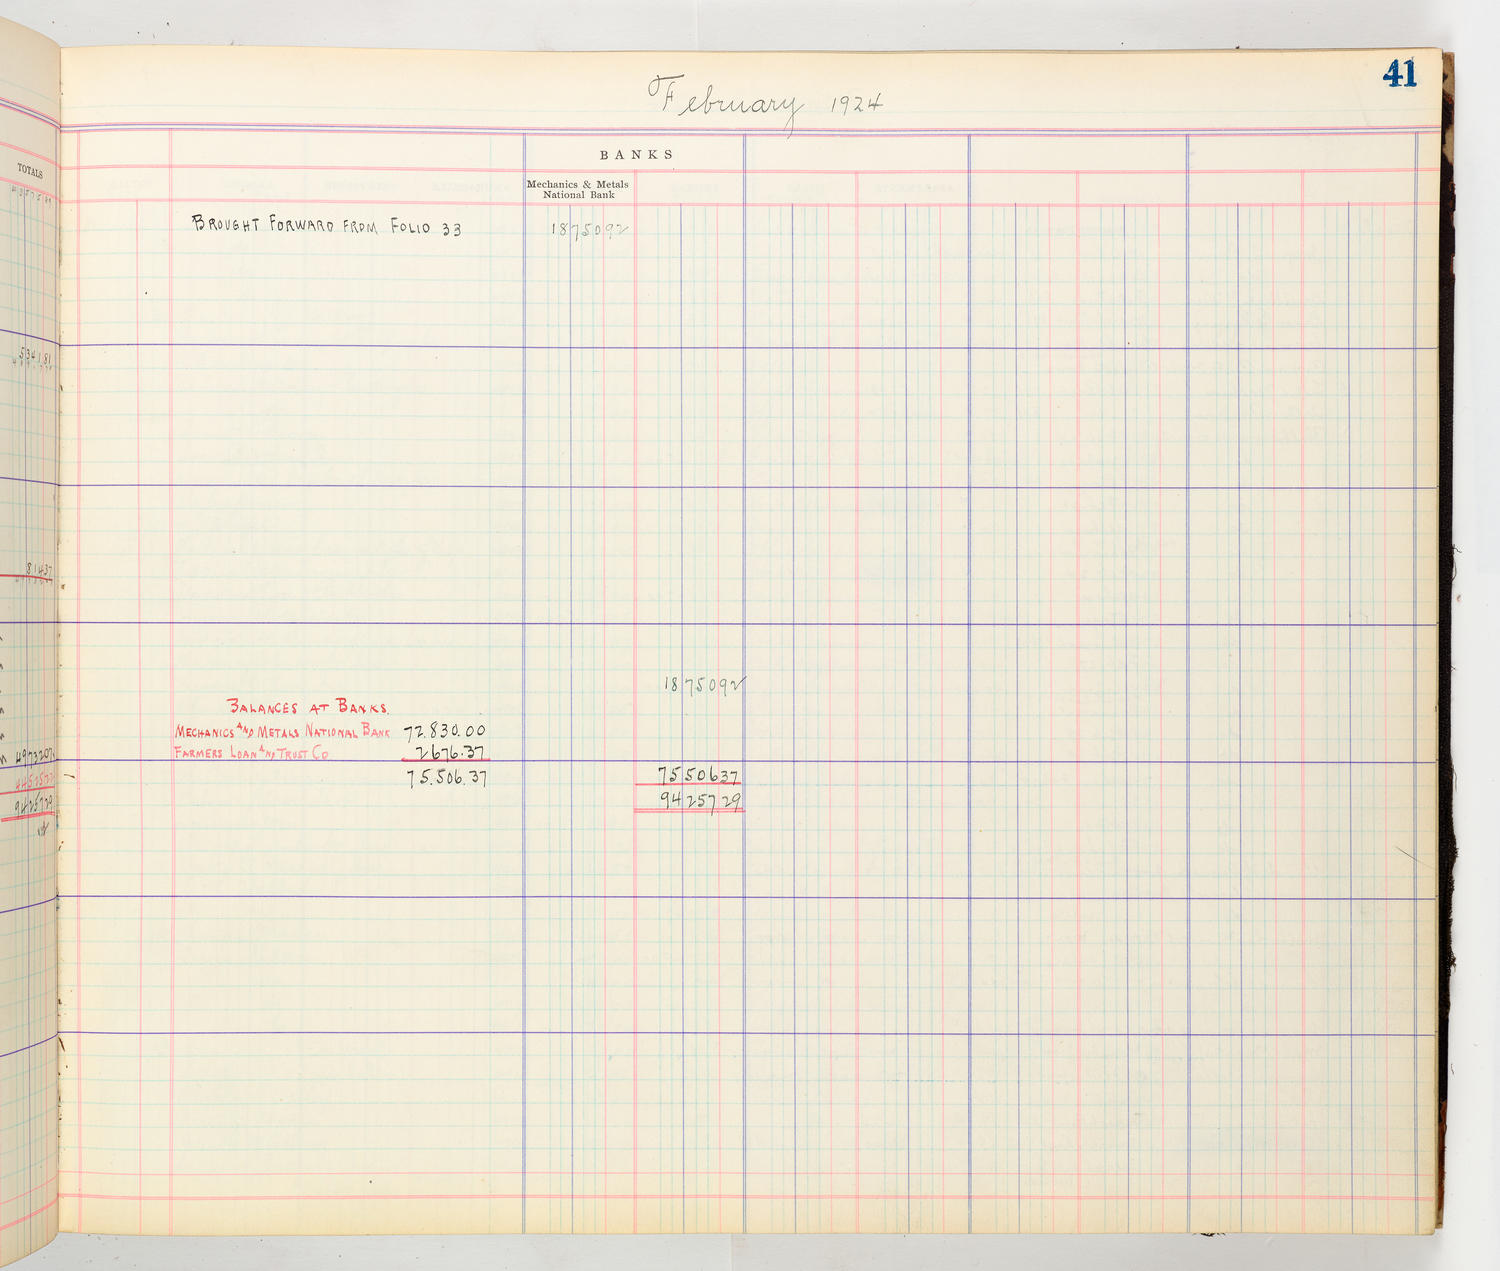 41
February 1924
BANKS
TOTALS
Mechanics & Metals
National Bank
BROUGHT FORWARD FROM FOLIO 33 1875092
534181
81437
1875092
BALANCES AT BANKS.
MECHANICS AND METALS NATIONAL BANK 72.830.00
FARMERS LOAN AND TRUST CO 2676.37
4973207
75.506.37 7550637
9425729
9425729